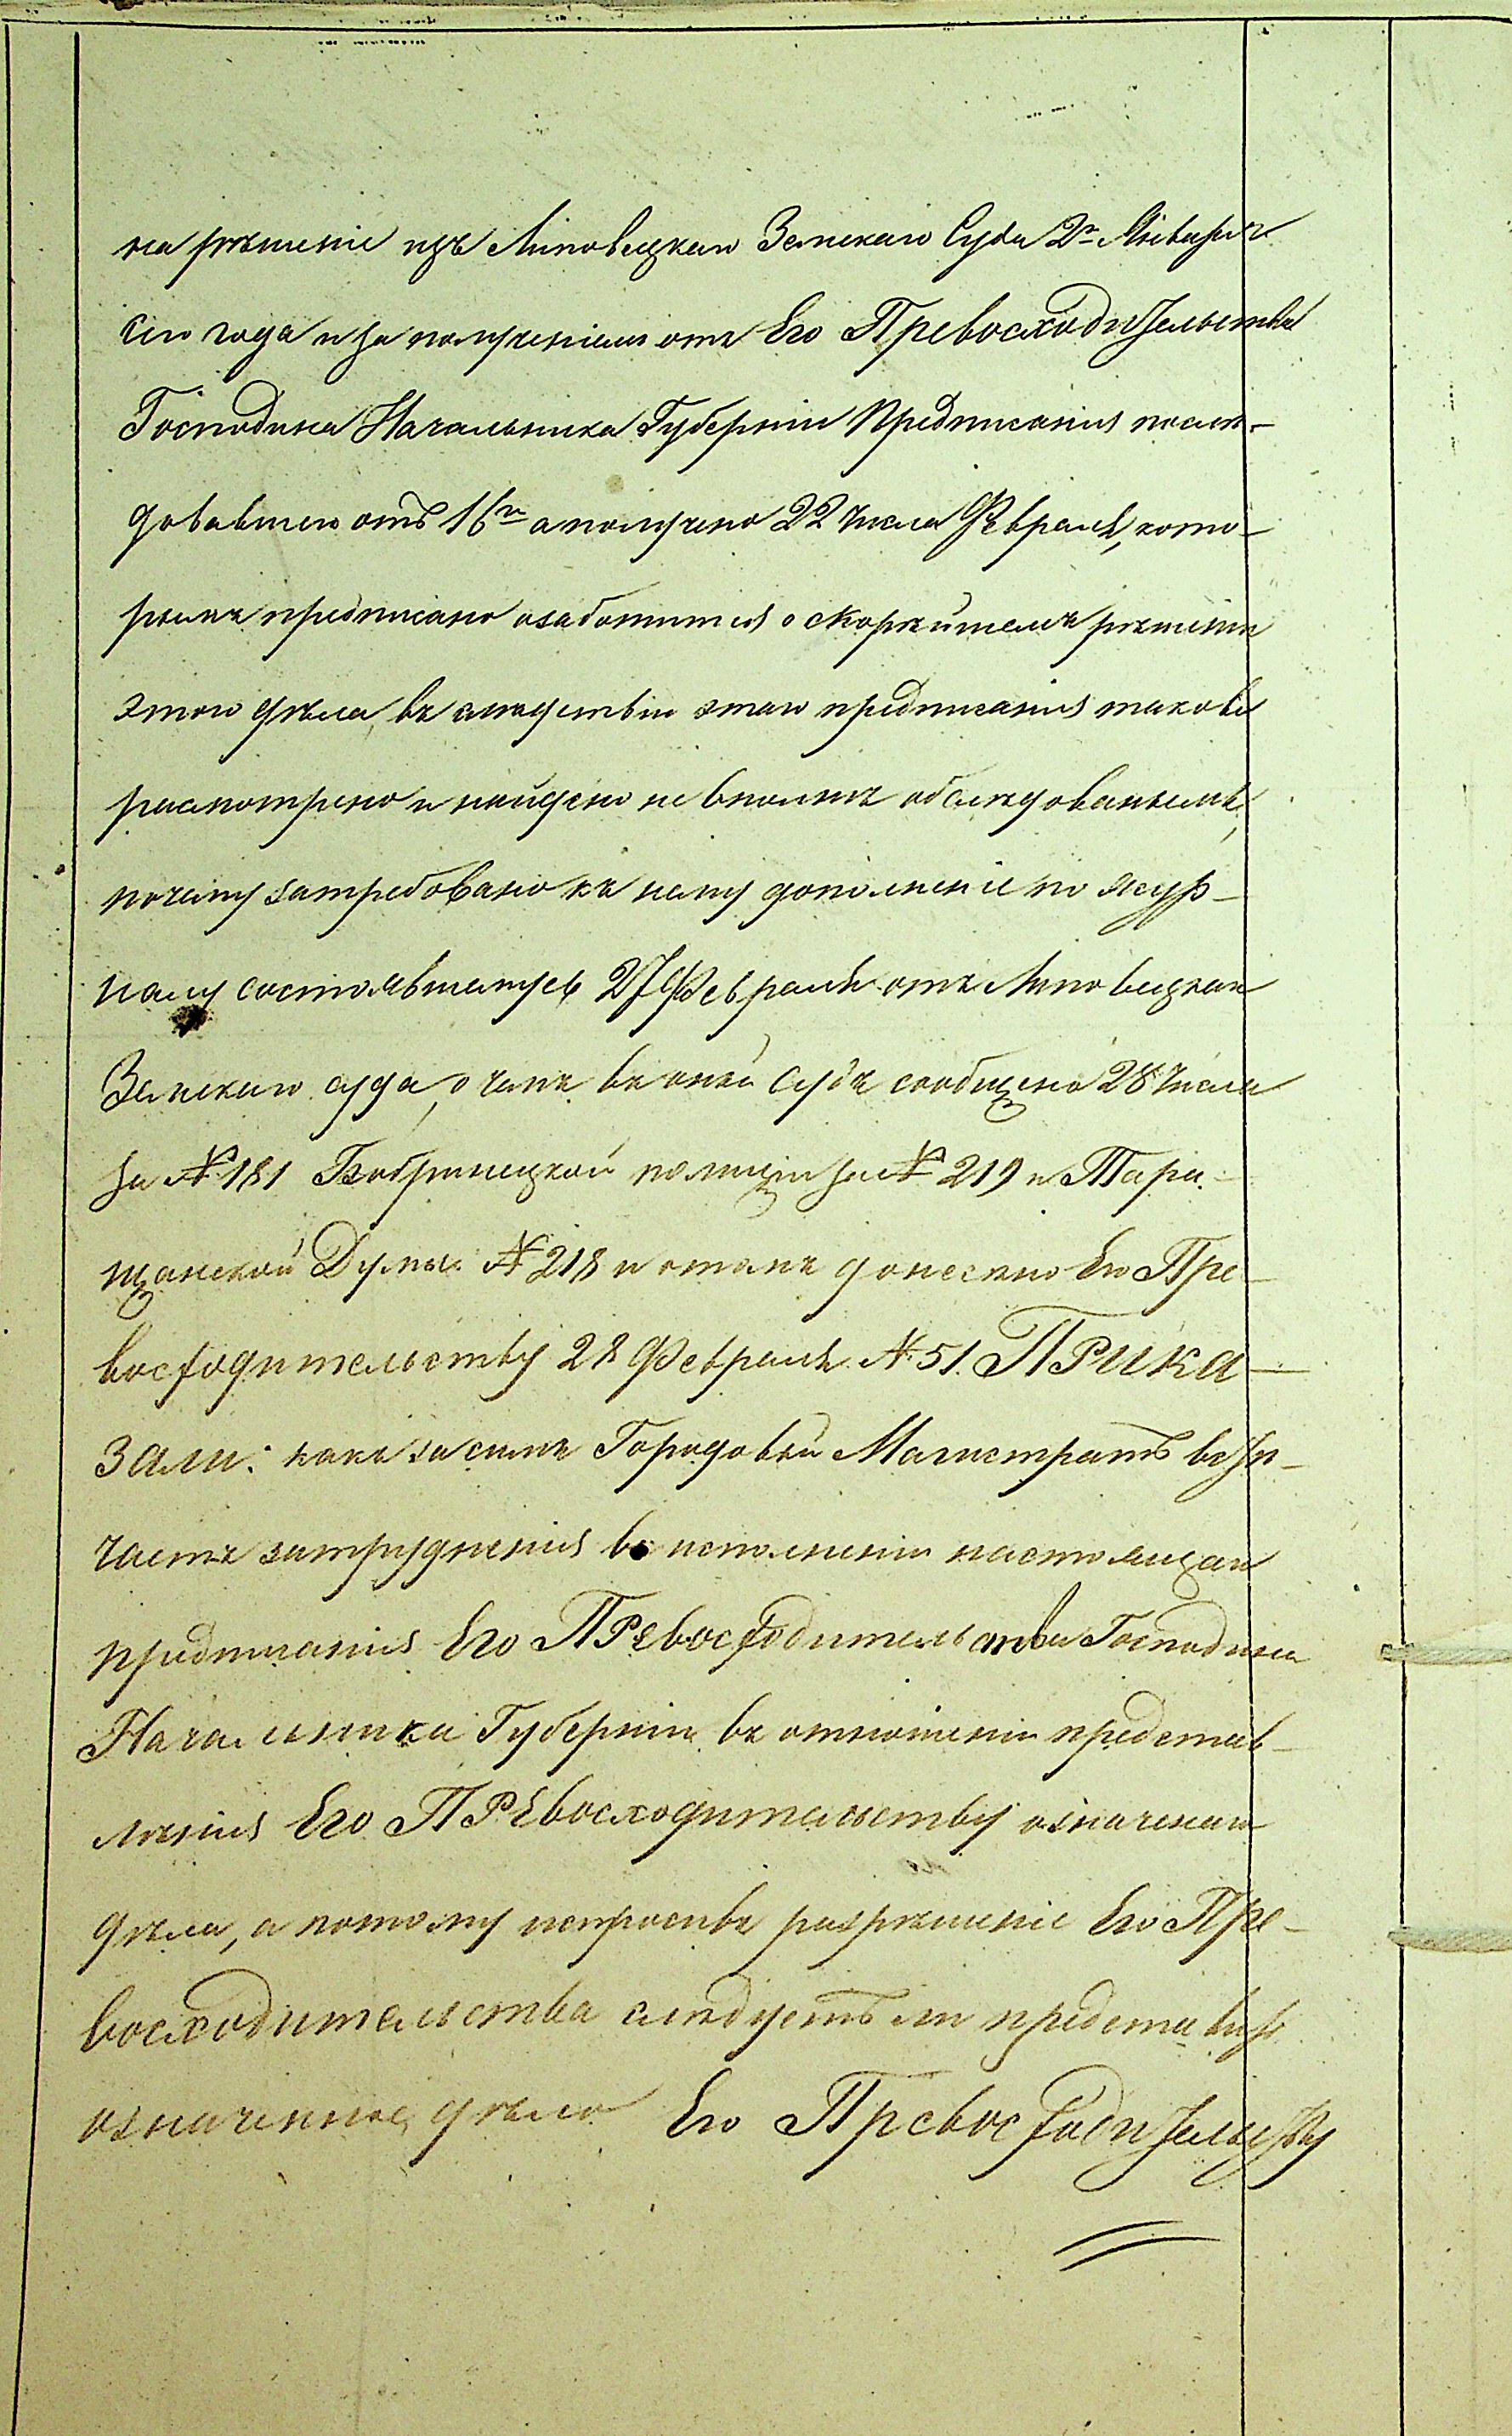 на рѣшеніе изъ Липовецкаго Земскаго Суда 2го Января
сего года и за полученіемъ отъ Его Превосходительства
Господина Начальника Губерніи Предписанія послѣ-
довавшего отъ 16го а получено 22 числа Февраля, кото-
рымъ предписано озаботится о скорѣйшемъ рѣшеніи
этого дѣла, въ слѣдствіи этаго предписанія таковое
расмотрено и найдено не вполнѣ обслѣдованнымъ,
почему затребовано къ нему дополненіе по жур-
налу состоявшемусь 27 Февраля отъ Липовецкаго
Земскаго суда, о чемъ въ оный Судъ сообщено 28 числа
за № 181 Бобринецкой полиціи за № 219 и Тара-
щанской Думы № 218 и о томъ донесено Его Пре-
восходительству 28 Февраля № 51. Прика-
зали: какъ за симъ Городовый Магистратъ встрѣ-
чаетъ затрудненія въ исполненіи настоящаго
предписанія Его Превосходительства Господина
Начальника Губерніи въ отношеніи представ-
ленія Его Превосходительству означенаго
дѣла, а потому испросивъ разрѣшеніе Его Пре-
восходительства слѣдуетъ ли представить
означенное дѣло Его Превосходительству